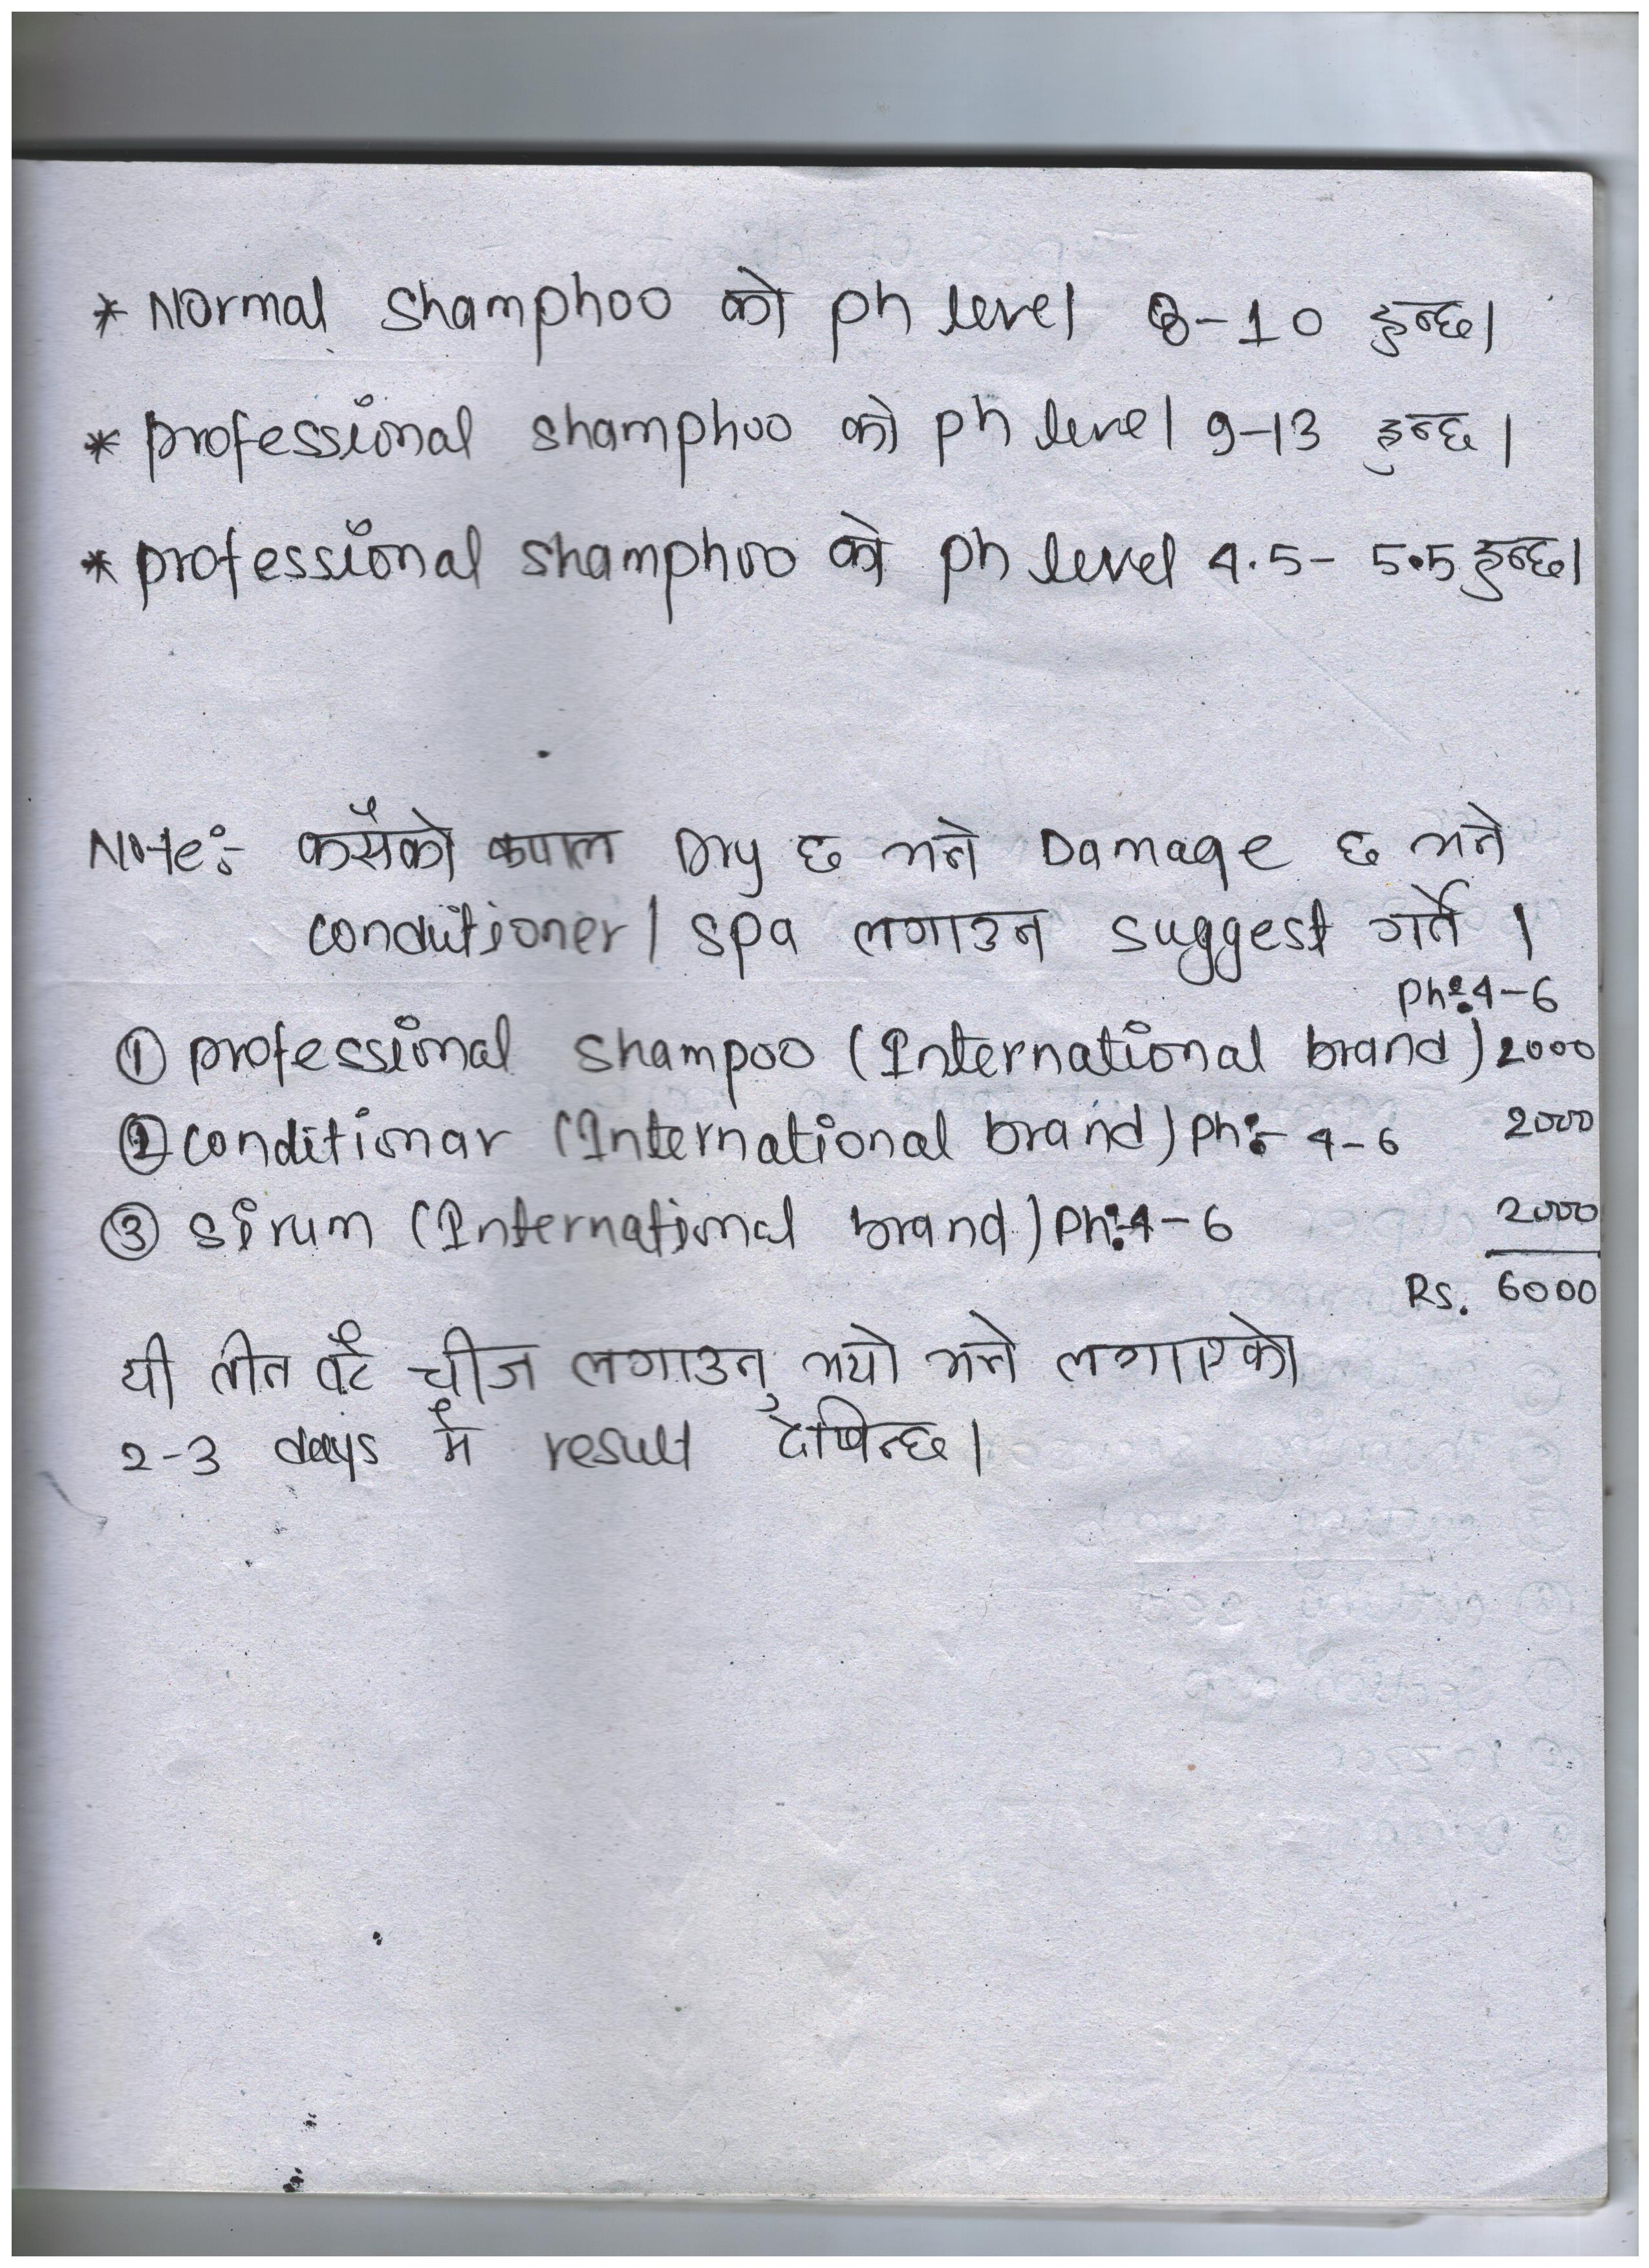 * Normal shamphoo को ph level 8-10 हुन्छ।
* professional shamphoo को ph level 9-13 हुन्छ।
* professional shamphoo को ph level 4.5- 5.5 हुन्छ।
Note:- कसैको कपाल Dry छ भने Damage छ भने
conditioner/ spa लगाउन suggest गर्ने ।
Ph:4-6
① professional shampoo (International brand) 2000
② conditionar (International brand) ph:- 4-6 2000
③ sirum (International brand) ph:4-6 2000
Rs. 6000
यी तीन वटै चीज लगाउनु भयो भने लगाएको
2-3 days मै result देखिन्छ।